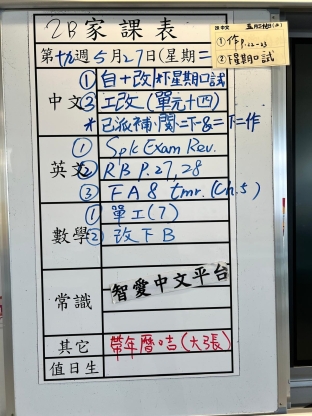 2B家課表
第十九週5月27日(星期二
中文
①自+改/*下星期口試
③工改(單元十四)
*已派補.閱二下&=下一作
英文
①Spk Exam Rev.
②RB P.27,28
③FA8 tmr.(Ch.5)
數學
①單工(7)
②改下B
常識
智愛中文平台
其它
帶年曆咭(大張)
值日生
①作P.22-23
②下星期口試